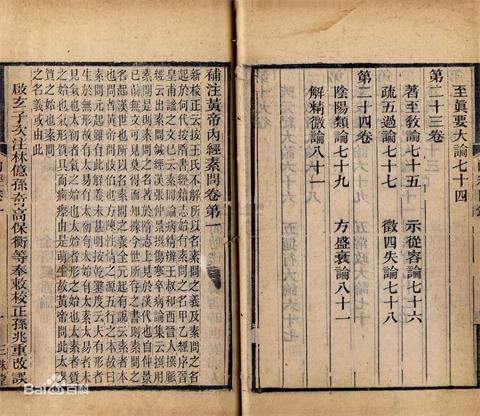 至眞要大論七十四
第二十三卷
著至敎論七十五 示從容論七十六
疏五過論七十七 徵四失論七十八
第二十四卷
陰陽類論七十九 方盛衰論八十
解精微論八十一
補注黃帝內經素問卷第一
新校正云按王氏不解所以名素問之義及素問之名
起於何代按隋書經籍志始有素問之名甲乙經序晉
皇甫謐之文已云素問論病精辨王叔和西晉人撰脉
經云出素問鍼經漢張仲景撰傷寒卒病論集云撰用
素問是則素問之名著於隋志上見於漢代也自仲景
已前無文可見莫得而知據今世所存之書則素問之
名起漢世也所以名素問之義全元起有說云素者本
也問者黃帝問岐伯也方陳性情之源五行之本故曰
素問元起雖有此解義未甚明按乾鑿度云夫有形者
生於無形故有太易有太初有太始有太素太易者未
見氣也太初者氣之始也太始者形之始也太素者質
之始也氣形質具而痾瘵由是萌生故黃帝問此太素
質之始也素問
之名義或由此
啟玄子次注林億孫奇高保衡等奉敕校正孫兆重改誤
Baidu百科